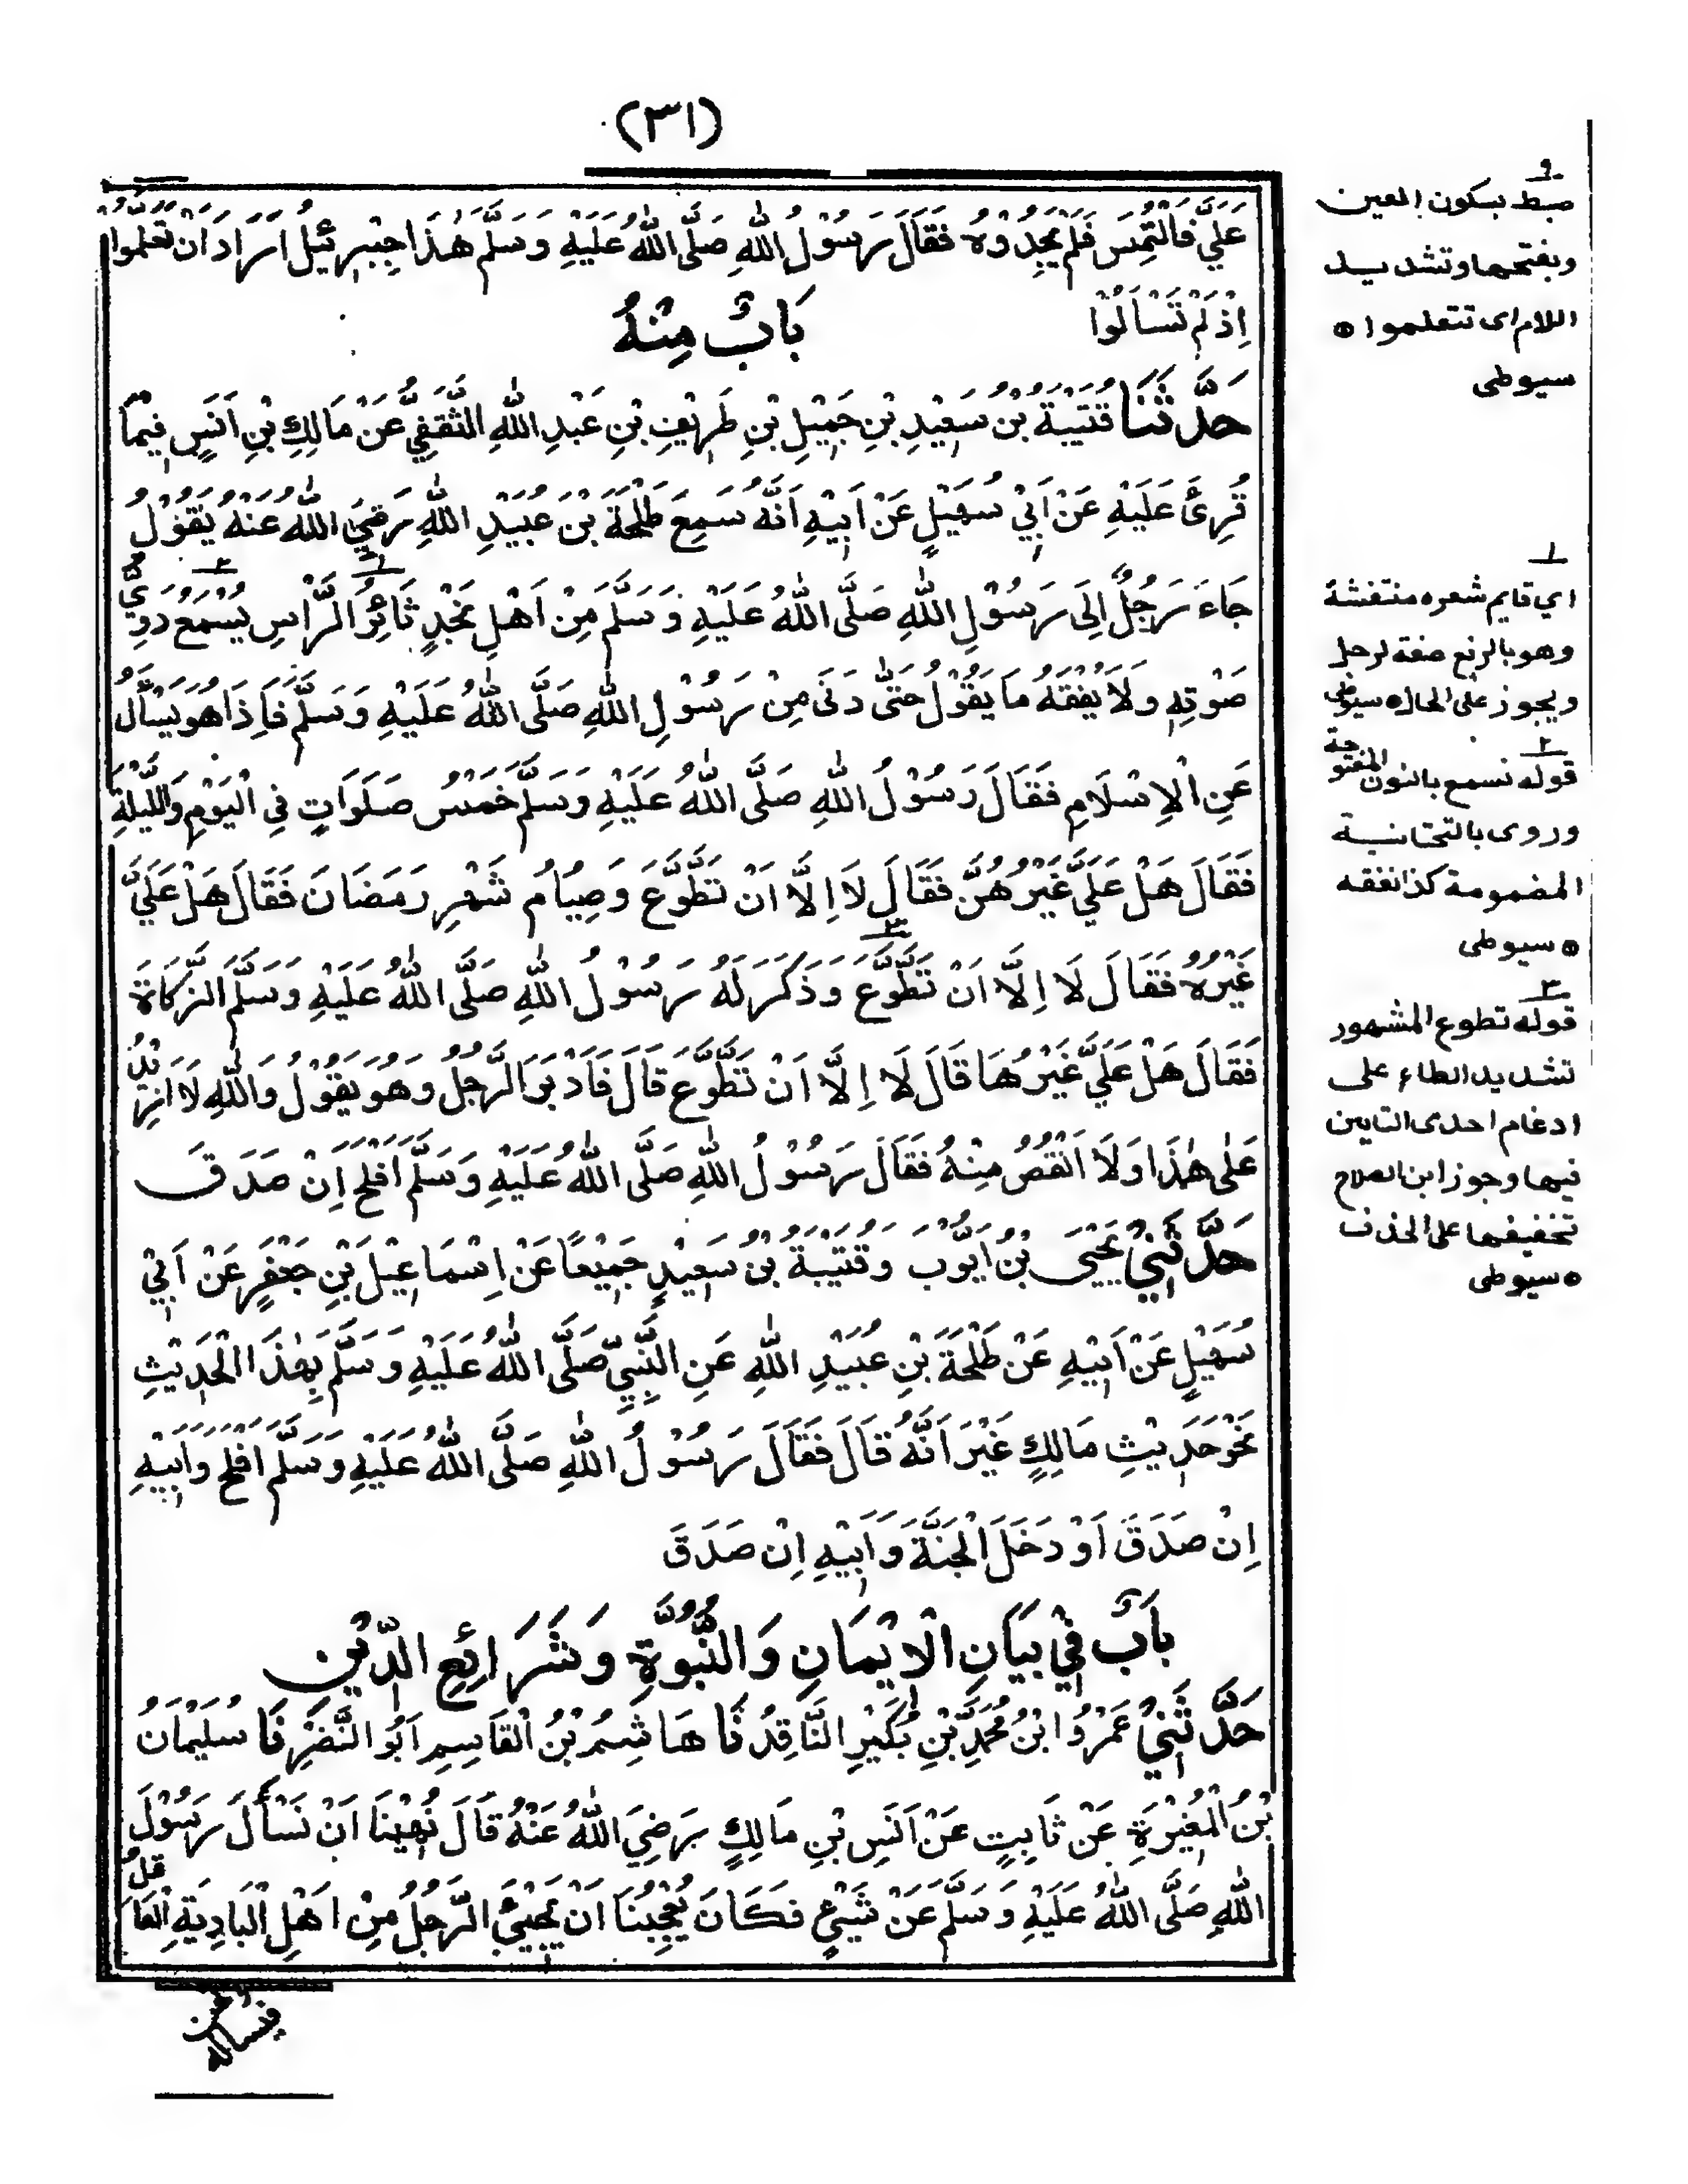 (٣١)
عَلَيَّ فَالْتُمِسَ فَلَمْ يَجِدُوْهُ فَقَالَ رَسُوْلُ اللّٰهِ صَلَّى اللّٰهُ عَلَيْهِ وَسَلَّمَ هٰذَا جِبْرِئِيْلُ اَرَادَ اَنْ تَعَلَّمُوْا
اِذْ لَمْ تَسْاَلُوْا
بَابٌ مِنْهُ
حَدَّثَنَا قُتَيْبَةُ بْنُ سَعِيْدِ بْنِ جَمِيْلِ بْنِ طَرِيْفِ بْنِ عَبْدِ اللّٰهِ الثَّقَفِيُّ عَنْ مَالِكِ بْنِ اَنَسٍ فِيْمَا
قُرِئَ عَلَيْهِ عَنْ اَبِيْ سُهَيْلٍ عَنْ اَبِيْهِ اَنَّهُ سَمِعَ طَلْحَةَ بْنَ عُبَيْدِ اللّٰهِ رَضِيَ اللّٰهُ عَنْهُ يَقُوْلُ
جَاءَ رَجُلٌ اِلَى رَسُوْلِ اللّٰهِ صَلَّى اللّٰهُ عَلَيْهِ وَسَلَّمَ مِنْ اَهْلِ نَجْدٍ ثَائِرُ الرَّاْسِ يُسْمَعُ دَوِيُّ
صَوْتِهٖ وَلَا يُفْقَهُ مَا يَقُوْلُ حَتّٰى دَنٰى مِنْ رَسُوْلِ اللّٰهِ صَلَّى اللّٰهُ عَلَيْهِ وَسَلَّمَ فَاِذَا هُوَ يَسْأَلُ
عَنِ الْاِسْلَامِ فَقَالَ رَسُوْلُ اللّٰهِ صَلَّى اللّٰهُ عَلَيْهِ وَسَلَّمَ خَمْسُ صَلَوَاتٍ فِي الْيَوْمِ وَاللَّيْلَةِ
فَقَالَ هَلْ عَلَيَّ غَيْرُهُنَّ فَقَالَ لَا اِلَّا اَنْ تَطَّوَّعَ وَصِيَامُ شَهْرِ رَمَضَانَ فَقَالَ هَلْ عَلَيَّ
غَيْرُهُ فَقَالَ لَا اِلَّا اَنْ تَطَّوَّعَ وَذَكَرَ لَهُ رَسُوْلُ اللّٰهِ صَلَّى اللّٰهُ عَلَيْهِ وَسَلَّمَ الزَّكَاةَ
فَقَالَ هَلْ عَلَيَّ غَيْرُهَا قَالَ لَا اِلَّا اَنْ تَطَّوَّعَ قَالَ فَاَدْبَرَ الرَّجُلُ وَهُوَ يَقُوْلُ وَاللّٰهِ لَا اَزِيْدُ
عَلٰى هٰذَا وَلَا اَنْقُصُ مِنْهُ فَقَالَ رَسُوْلُ اللّٰهِ صَلَّى اللّٰهُ عَلَيْهِ وَسَلَّمَ اَفْلَحَ اِنْ صَدَقَ
حَدَّثَنِيْ يَحْيَى بْنُ اَيُّوْبَ وَقُتَيْبَةُ بْنُ سَعِيْدٍ جَمِيْعًا عَنْ اِسْمَاعِيْلَ بْنِ جَعْفَرٍ عَنْ اَبِيْ
سُهَيْلٍ عَنْ اَبِيْهِ عَنْ طَلْحَةَ بْنِ عُبَيْدِ اللّٰهِ عَنِ النَّبِيِّ صَلَّى اللّٰهُ عَلَيْهِ وَسَلَّمَ بِهٰذَا الْحَدِيْثِ
نَحْوَ حَدِيْثِ مَالِكٍ غَيْرَ اَنَّهُ قَالَ فَقَالَ رَسُوْلُ اللّٰهِ صَلَّى اللّٰهُ عَلَيْهِ وَسَلَّمَ اَفْلَحَ وَاَبِيْهِ
اِنْ صَدَقَ اَوْ دَخَلَ الْجَنَّةَ وَاَبِيْهِ اِنْ صَدَقَ
بَابٌ فِيْ بَيَانِ الْاِيْمَانِ وَالنُّبُوَّةِ وَشَرَائِعِ الدِّيْنِ
حَدَّثَنِيْ عَمْرُو ابْنُ مُحَمَّدِ بْنِ بُكَيْرٍ النَّاقِدُ نَا هَاشِمُ بْنُ الْقَاسِمِ اَبُو النَّضْرِ نَا سُلَيْمَانُ
بْنُ الْمُغِيْرَةِ عَنْ ثَابِتٍ عَنْ اَنَسِ بْنِ مَالِكٍ رَضِيَ اللّٰهُ عَنْهُ قَالَ نُهِيْنَا اَنْ نَسْأَلَ رَسُوْلَ
اللّٰهِ صَلَّى اللّٰهُ عَلَيْهِ وَسَلَّمَ عَنْ شَيْءٍ فَكَانَ يُعْجِبُنَا اَنْ يَجِيْئَ الرَّجُلُ مِنْ اَهْلِ الْبَادِيَةِ الْعَاقِلُ
ضبط بسكون العين
وبفتحها وتشديد
اللام اى تتعلموا ه
سيوطى
١
اي قايم شعره منتفشة
وهو بالرفع صفة لرجل
ويجوز على الحال ه سيوطى
٢
قوله نسمع بالنون المفتوحة
وروى بالتحتانية
المضمومة كذا نفقه
ه سيوطى
٣
قوله تطوع المشهور
تشديد الطاء على
ادغام احدى التايين
فيها وجوز ابن الصلاح
تخفيفها على الحذف
ه سيوطى